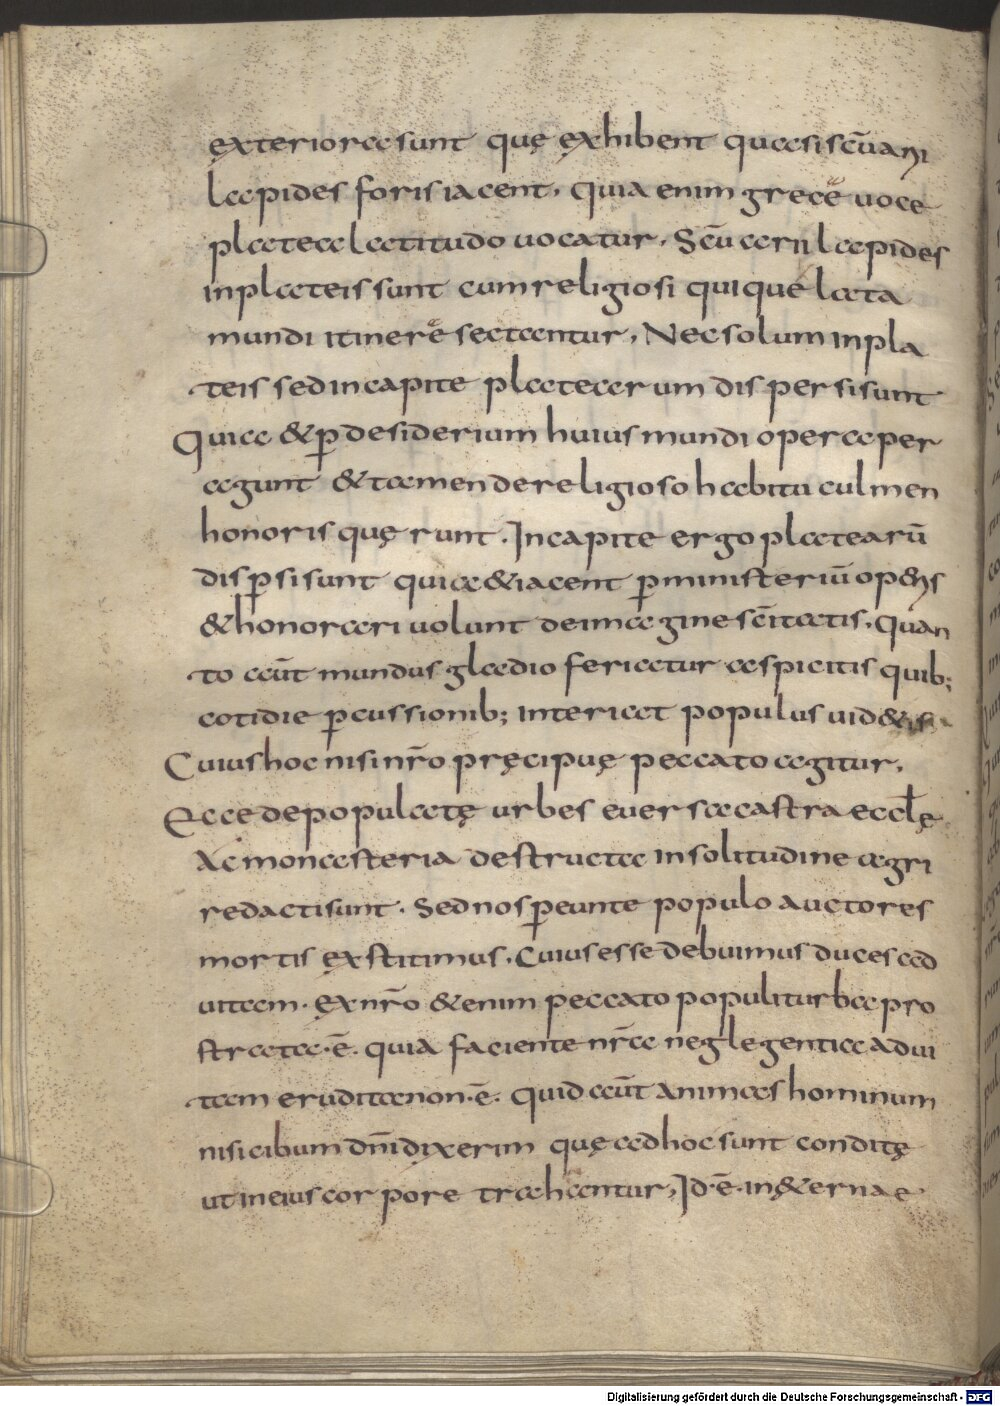 ęxteriora sunt quę ęxhibent quasi sc̄uarii
lapides foris iacent, quia enim grece uoce
platea latitudo uocatur. Sc̄uarii lapides
in plateis sunt cum religiosi quique lata
mundi itinera sectantur, Nec solum in pla
teis sed in capite platearum dispersi sunt
Quia & ꝑ desiderium huius mundi opera per
agunt & tamen de religioso habitu culmen
honoris quęrunt. In capite ergo platearū
disꝑsi sunt quia & iacent ꝑ ministeriū operis
& honorari uolunt de imagine sc̄itatis. Quan
to aūt mundus gladio feriatur aspicitis quib;
cotidie ꝑcussionib; interiat populus uid&is
Cuius hoc nisi nr̄o pręcipuę peccato agitur.
Ecce depopulatę urbes euersa castra eccłę
Ac monasteria destructa in solitudine agri
redacti sunt. Sed nos ꝑeunte populo auctores
mortis ęxstitimus. Cuius esse debuimus duces ad
uitam. Ex nr̄o &enim peccato populi turba pro
strata·ē· quia faciente nr̄a neglegentia ad ui
tam erudita non·ē· Quid aūt animas hominum
nisi cibum dn̄i dixerim quę ad hoc sunt conditę
ut in eius corpore trahantur, Id·ē· in &ernae
Digitalisierung gefördert durch die Deutsche Forschungsgemeinschaft - DFG